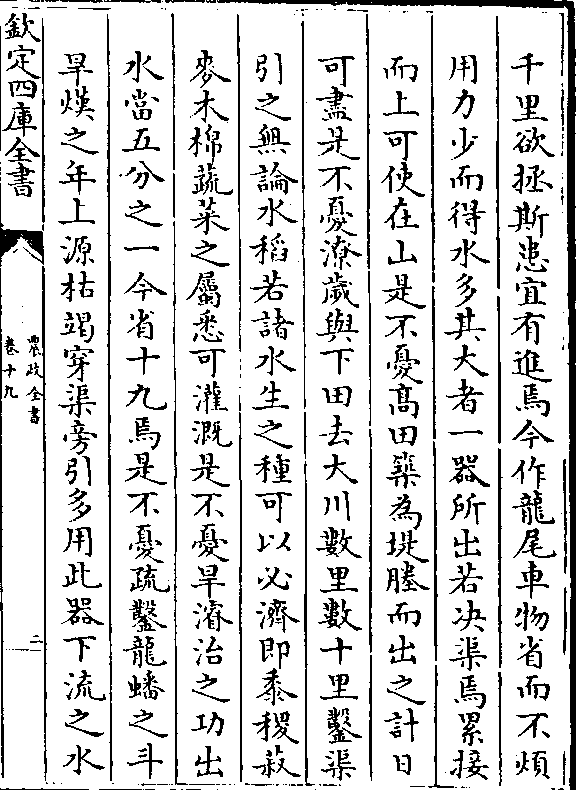 千里欲拯斯患宜有進焉今作龍尾車物省而不煩
用力少而得水多其大者一器所出若决渠焉累接
而上可使在山是不憂髙田築為堤塍而出之計日
可盡是不憂潦歲與下田去大川數里數十里鑿渠
引之無論水稻若諸水生之種可以必濟即黍稷菽
麥木棉蔬菜之屬悉可灌溉是不憂旱濬治之功出
水當五分之一今省十九焉是不憂疏鑿龍蟠之斗
旱熯之年上源枯竭穿渠旁引多用此器下流之水
欽定四庫全書
農政全書
卷十九
二